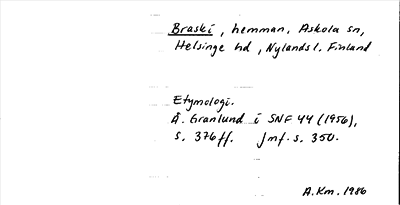 Braski, hemman, Askola sn,
Helsinge hd, Nylands l. Finland
Etymologi.
Å. Granlund i SNF 44 (1956),
s. 376ff. Jmf. s. 350.
A.Km. 1986